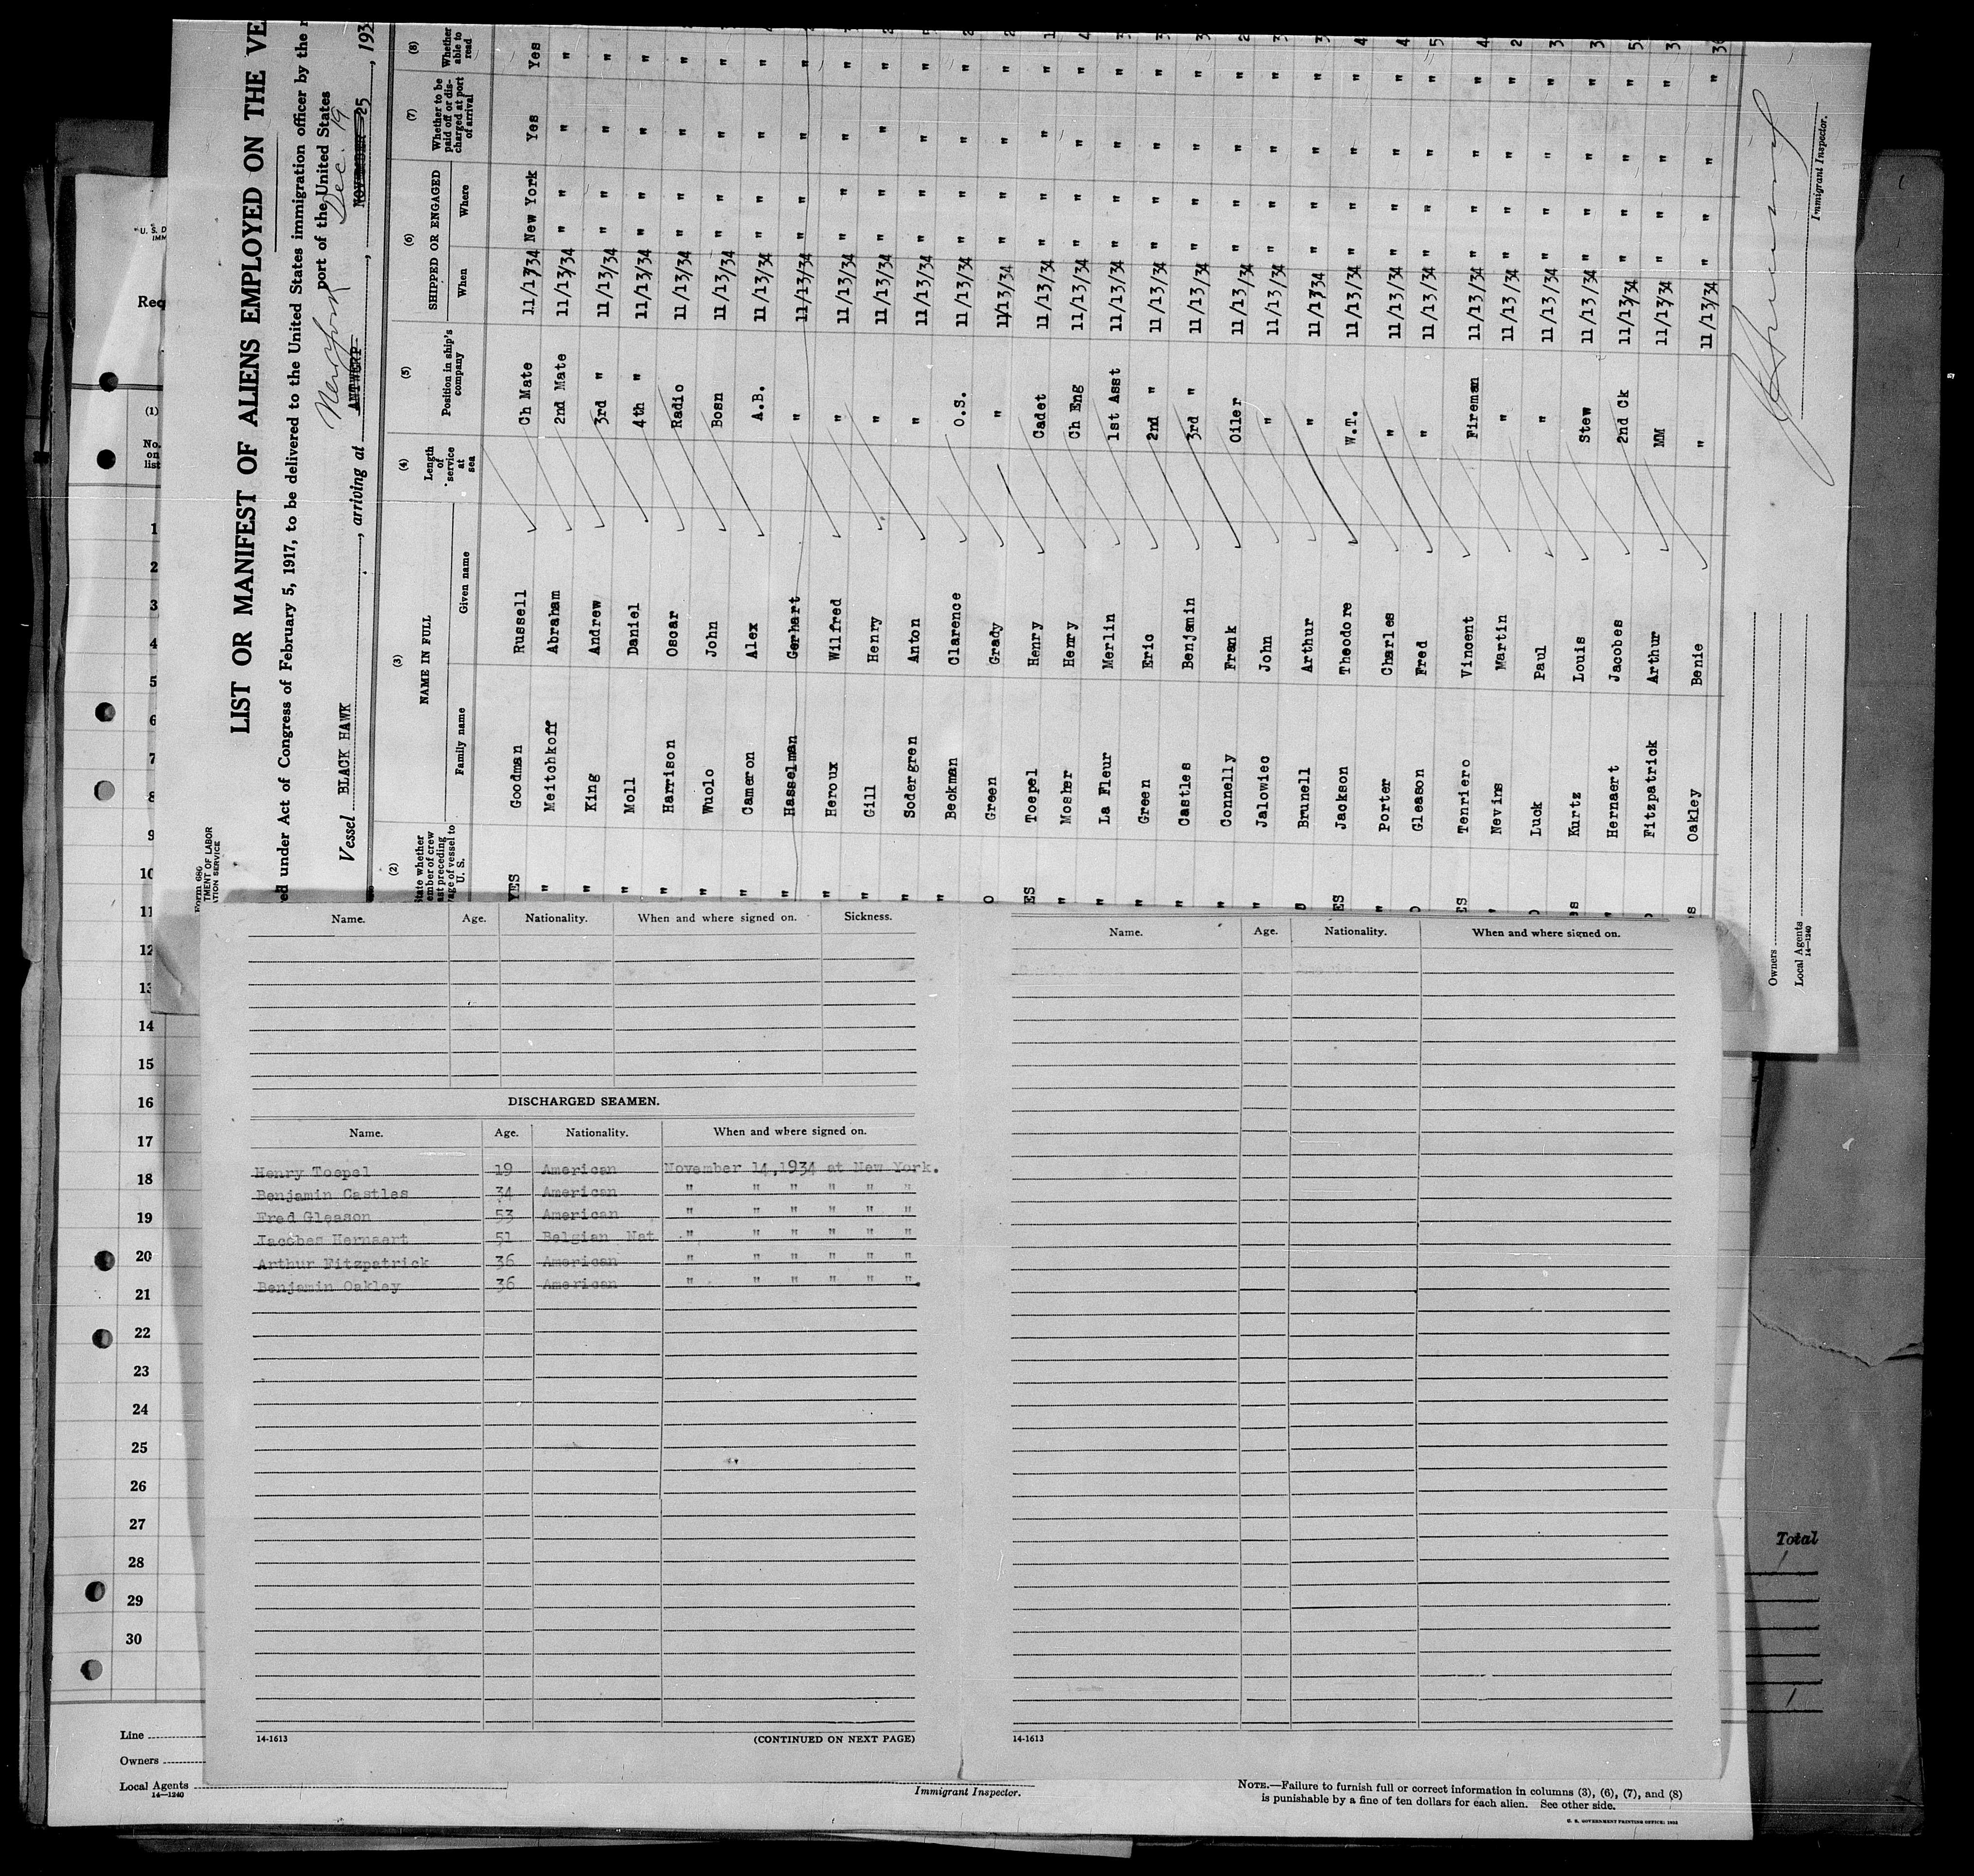 LIST OR MANIFEST OF ALIENS EMPLOYED ON THE VE
ed under Act of Congress of February 5, 1917, to be delivered to the United States immigration officer by the
Vessel BLACK HAWK, arriving at ANTWERP New York, port of the United States NOVEMBER 25 Dec. 19, 193
Form 680
TMENT OF LABOR
ATION SERVICE
(2) (3) (4) (5) (6) (7) (8)
NAME IN FULL
Family name Given name
Length of service at sea
Position in ship's company
SHIPPED OR ENGAGED
When Where
Whether to be paid off or discharged at port of arrival
Whether able to read
YES Goodman Russell Ch Mate 11/13/34 New York Yes Yes
" Meitchkoff Abraham 2nd Mate 11/13/34 " " " "
" King Andrew 3rd " 11/13/34 " " " "
" Moll Daniel 4th " 11/13/34 " " " "
" Harrison Oscar Radio 11/13/34 " " " "
" Wuolo John Bosn 11/13/34 " " " "
" Cameron Alex A.B. 11/13/34 " " " "
" Hasselman Gerhart " 11/13/34 " " " "
" Heroux Wilfred " 11/13/34 " " " "
" Gill Henry " 11/13/34 " " " "
" Sodergren Anton " 11/13/34 " " " "
" Beckman Clarence O.S. 11/13/34 " " " "
O Green Grady " 11/13/34 " " " "
ES Toepel Henry Cadet 11/13/34 " " " "
" Mosher Henry Ch Eng 11/13/34 " " " "
" La Fleur Merlin 1st Asst 11/13/34 " " " "
" Green Eric 2nd " 11/13/34 " " " "
" Castles Benjamin 3rd " 11/13/34 " " " "
" Connelly Frank Oiler 11/13/34 " " " "
" Jalowiec John " 11/13/34 " " " "
Brunell Arthur " 11/13/34 " " " "
ES Jackson Theodore W.T. 11/13/34 " " " "
" Porter Charles " 11/13/34 " " " "
Gleason Fred " 11/13/34 " " " "
ES Tenriero Vincent Fireman 11/13/34 " " " "
" Nevins Martin " 11/13/34 " " " "
Luck Paul " 11/13/34 " " " "
Kurtz Louis Stew 11/13/34 " " " "
" Hernaert Jacobes 2nd Ck 11/13/34 " " " "
Fitzpatrick Arthur MM 11/13/34 " " " "
Oakley Benie " 11/13/34 " " " "
Immigrant Inspector.
Owners
Local Agents
14—1240
U. S. D
IMM
Req
(1)
No. on list
1
2
3
4
5
6
7
8
9
10
11
12
13
14
15
16
17
18
19
20
21
22
23
24
25
26
27
28
29
30
Name. Age. Nationality. When and where signed on. Sickness.
DISCHARGED SEAMEN.
Name. Age. Nationality. When and where signed on.
Henry Toepel 19 American November 14,1934 at New York.
Benjamin Castles 34 American " " " " " "
Fred Gleason 53 American " " " " " "
Jacobes Hernaert 51 Belgian Nat " " " " " "
Arthur Fitzpatrick 36 American " " " " " "
Benjamin Oakley 36 American " " " " " ".
14-1613 (CONTINUED ON NEXT PAGE)
Name. Age. Nationality. When and where signed on.
14-1613
Total
1
1
Line
Owners
Local Agents
14—1240
Immigrant Inspector.
NOTE.—Failure to furnish full or correct information in columns (3), (6), (7), and (8)
is punishable by a fine of ten dollars for each alien. See other side.
U. S. GOVERNMENT PRINTING OFFICE: 1932